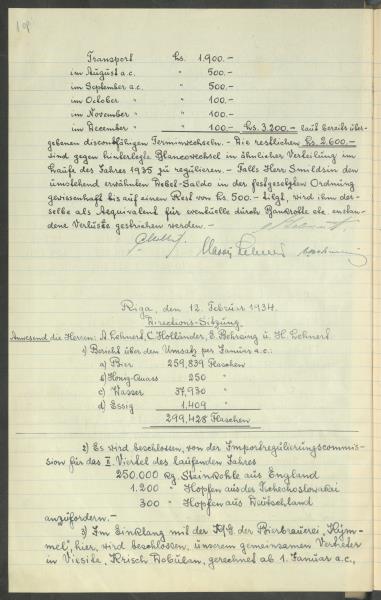 Transport Ls. 1.900.-
im August a.c. " 500.-
im September a.c. " 500.-
im October " " 100.-
im November " " 100.-
im Dezember " " 100.- Ls. 3.200.- laut bereits über-
gebenen discontfähigen Terminwechseln. - Die restlichen Ls. 2.600.-
sind gegen hinterlegte Blancowechsel in ähnlicher Verteilung im
Laufe des Jahres 1935 zu regulieren. - Falls Herr Smildsin den
umstehend erwähnten Debel-Saldo in der festgesetzten Ordnung
gewissenhaft bis auf einen Rest von Ls. 500.- tilgt, wird ihm der-
selbe als Aequivalent für eventuelle durch Bankrotte etc. enstan-
dene Verluste gestrichen werden. -
Riga, den 12. Februar 1934.
Directions-Sitzung.
Anwesend die Herren: A. Lehnert, C. Holländer, E. Behrsing u. H. Lehnert
1) Bericht über den Umsatz per Januar a.c.:
a) Bier 259,839 Flaschen
b) Honig-Quass 250 "
c) Wasser 37,930 "
d) Essig 1.409 "
299,428 Flaschen
2) Es wird beschlossen, von der Importregulierungscommis-
sion für das II. Viertel des laufenden Jahres
250.000 kg Steinkohle aus England
1.200 " Hopfen aus der Tschechoslowakei
300 " Hopfen aus Deutschland
anzufordern. -
3) Im Einklang mit der A/G. der Bierbrauerei "Kym-
mel", hier, wird beschlossen, unserem gemeinsamen Vertreter
in Viesite, Krisch Robulan, gerechnet ab 1. Januar a.c.,